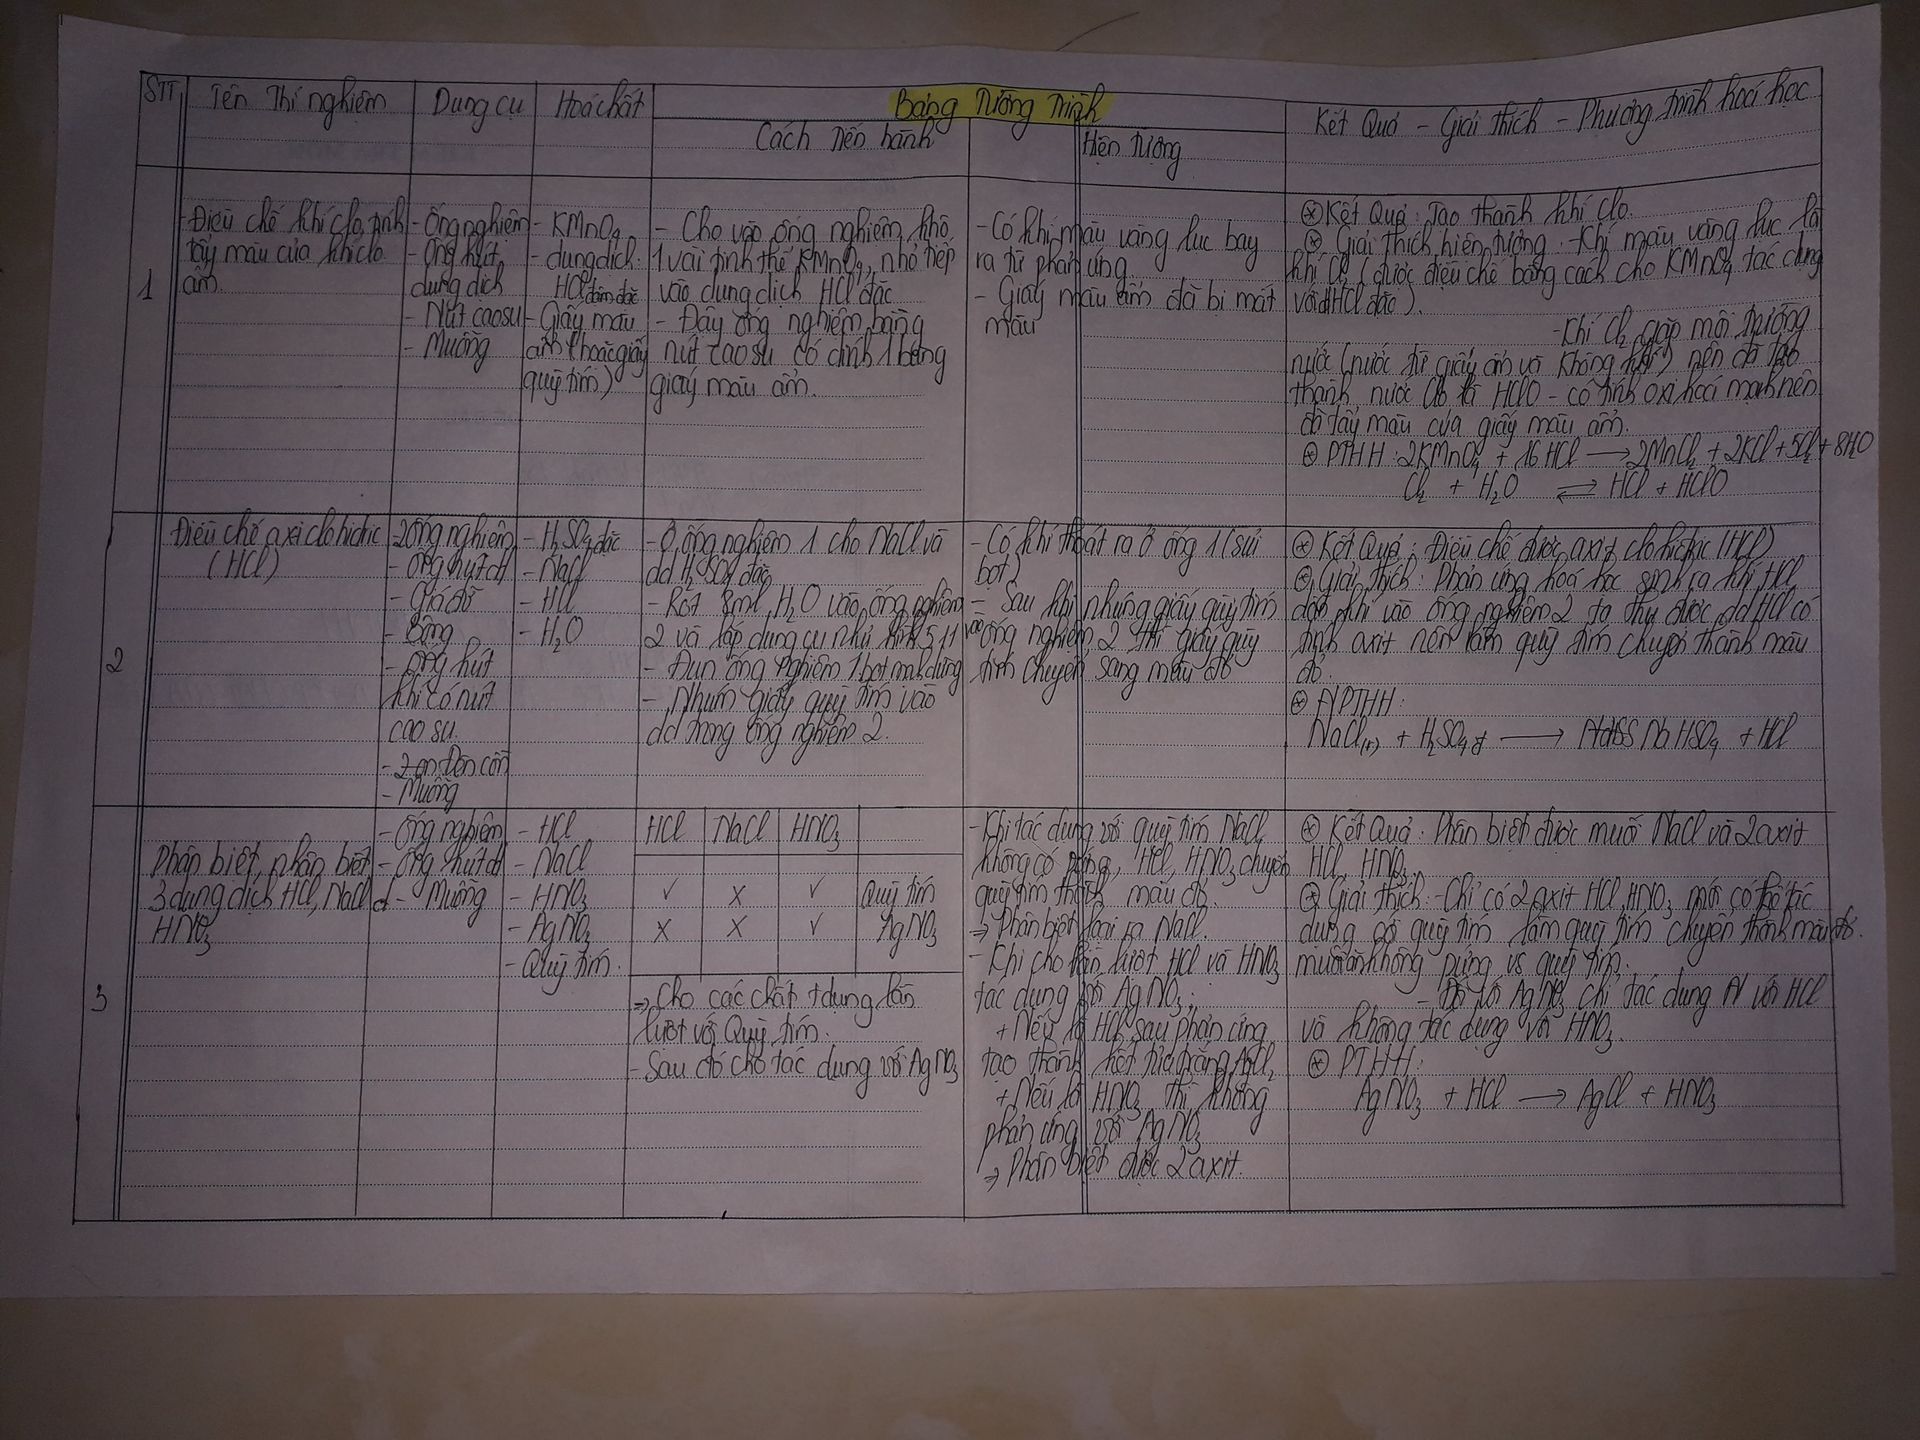 Bảng Tường Trình
STT
Tên Thí nghiệm
Dụng cụ
Hoá chất
Cách tiến hành
Hiện tượng
Kết Quả - Giải thích - Phương trình hoá học
1
- Điều chế khí clo, tính
tẩy màu của khí clo
ẩm.
- Ống nghiệm
- Ống hút
dung dịch
- Nút cao su
- Muỗng
- KMnO4
- dung dịch
HCl đậm đặc
- Giấy màu
ẩm (hoặc giấy
quỳ tím)
- Cho vào ống nghiệm khô
1 vài tinh thể KMnO4, nhỏ tiếp
vào dung dịch HCl đặc
- Đậy ống nghiệm bằng
nút cao su có đính 1 băng
giấy màu ẩm.
- Có khí màu vàng lục bay
ra từ phản ứng
- Giấy màu ẩm đã bị mất
màu
⊛ Kết Quả: Tạo thành khí clo.
⊛ Giải thích hiện tượng: - Khí màu vàng lục là
khí Cl2 (được điều chế bằng cách cho KMnO4 tác dụng
với HCl đặc).
- Khí Cl2 gặp môi trường
nước (nước từ giấy ẩm và không khí) nên đã tạo
thành nước Clo là HClO - có tính oxi hoá mạnh nên
đã tẩy màu của giấy màu ẩm.
⊛ PTHH: 2KMnO4 + 16HCl → 2MnCl2 + 2KCl + 5Cl2 + 8H2O
Cl2 + H2O ⇌ HCl + HClO
2
Điều chế axit clohidric
(HCl)
- 2 ống nghiệm
- Ống hút dd
- Giá đỡ
- Bông
- Ống hút
khí có nút
cao su.
- Đèn cồn
- Muỗng
- H2SO4 đặc
- NaCl
- HCl
- H2O
- Ở ống nghiệm 1 cho NaCl và
dd H2SO4 đặc
- Rót 8ml H2O vào ống nghiệm
2 và lắp dụng cụ như hình 5.11
- Đun ống nghiệm 1 bọt mạnh dừng
- Nhúng giấy quỳ tím vào
dd trong ống nghiệm 2.
- Có khí thoát ra ở ống 1 (sủi
bọt)
- Sau khi nhúng giấy quỳ tím
vào ống nghiệm 2 thì giấy quỳ
tím chuyển sang màu đỏ
⊛ Kết Quả: Điều chế được axit clohidric (HCl)
⊛ Giải thích: Phản ứng hoá học sinh ra khí HCl,
dẫn khí vào ống nghiệm 2 ta thu được dd HCl có
tính axit nên làm quỳ tím chuyển thành màu
đỏ.
⊛ PTHH:
NaCl(r) + H2SO4 đ → NaHSO4 + HCl
3
Phân biệt, nhận biết
3 dung dịch HCl, NaCl
HNO3
- Ống nghiệm
- Ống hút dd
- Muỗng
- HCl
- NaCl
- HNO3
- AgNO3
- Quỳ tím.
HCl NaCl HNO3
✓ X ✓ Quỳ tím
X X ✓ AgNO3
⇒ Cho các chất t dụng lần
lượt với Quỳ tím.
- Sau đó cho tác dụng với AgNO3
- Khi tác dụng với quỳ tím NaCl
không có pứng, HCl, HNO3 chuyển
quỳ tím thành màu đỏ.
⇒ Phân biệt loại ra NaCl.
- Khi cho lần lượt HCl và HNO3
tác dụng với AgNO3:
+ Nếu là HCl sau phản ứng
tạo thành kết tủa trắng AgCl2
+ Nếu là HNO3 thì không
phản ứng với AgNO3
⇒ Phân biệt được 2 axit.
⊛ Kết Quả: Phân biệt được muối NaCl và 2 axit
HCl, HNO3.
⊛ Giải thích: - Chỉ có 2 axit HCl, HNO3 mới có thể tác
dụng với quỳ tím làm quỳ tím chuyển thành màu đỏ.
muối không pứng vs quỳ tím.
- Đối với AgNO3 chỉ tác dụng với HCl
và không tác dụng với HNO3.
⊛ PTHH:
AgNO3 + HCl → AgCl + HNO3